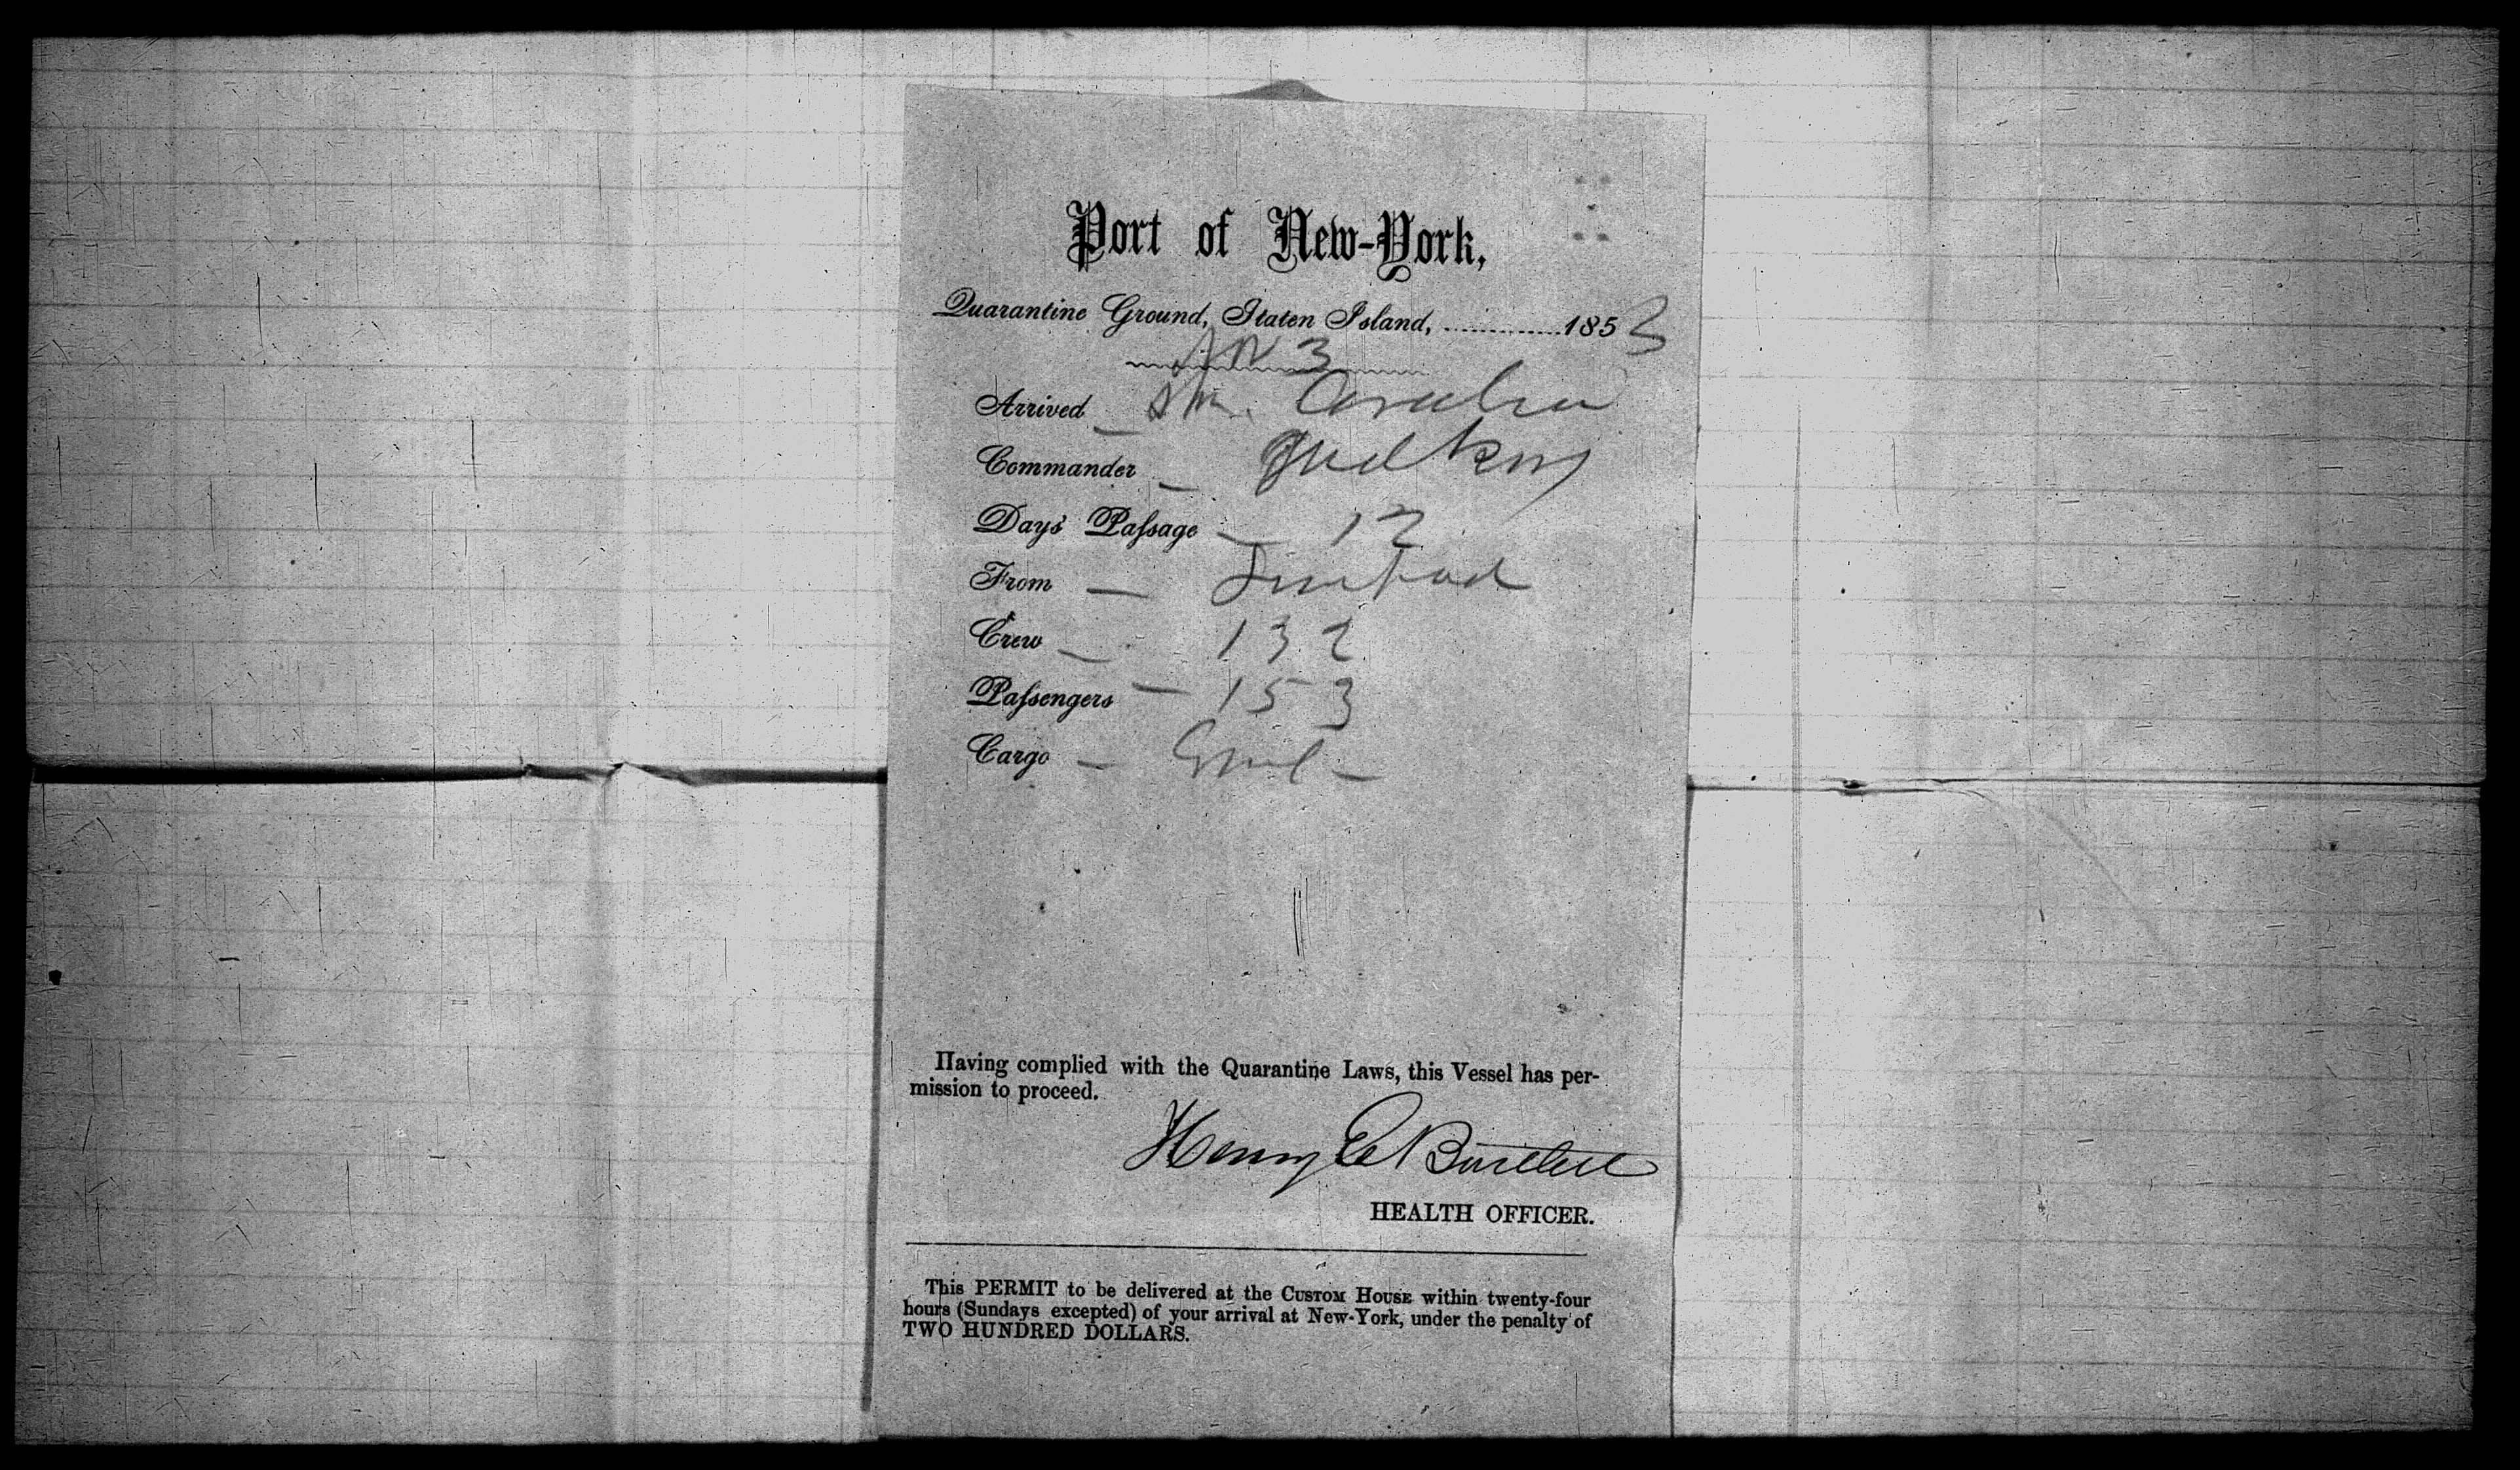 Port of New-York,
Quarantine Ground, Staten Island, ............1853
3
Arrived _ Str. Arabia
Commander _ Judkins
Days' Passage _ 12
From — Liverpool
Crew _ 132
Passengers — 153
Cargo —
Having complied with the Quarantine Laws, this Vessel has per-
mission to proceed.
Henry
HEALTH OFFICER.
This PERMIT to be delivered at the CUSTOM HOUSE within twenty-four
hours (Sundays excepted) of your arrival at New-York, under the penalty of
TWO HUNDRED DOLLARS.